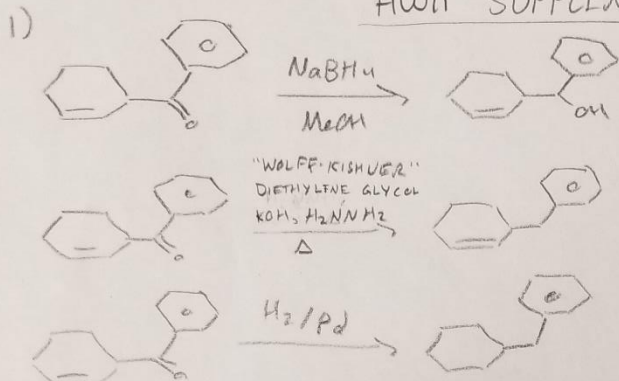 HW11 SUPPLEM
1)
NaBH4
MeOH
O
OH
"WOLFF-KISHNER"
DIETHYLENE GLYCOL
KOH, H2NNH2
Δ
O
H2/Pd
O